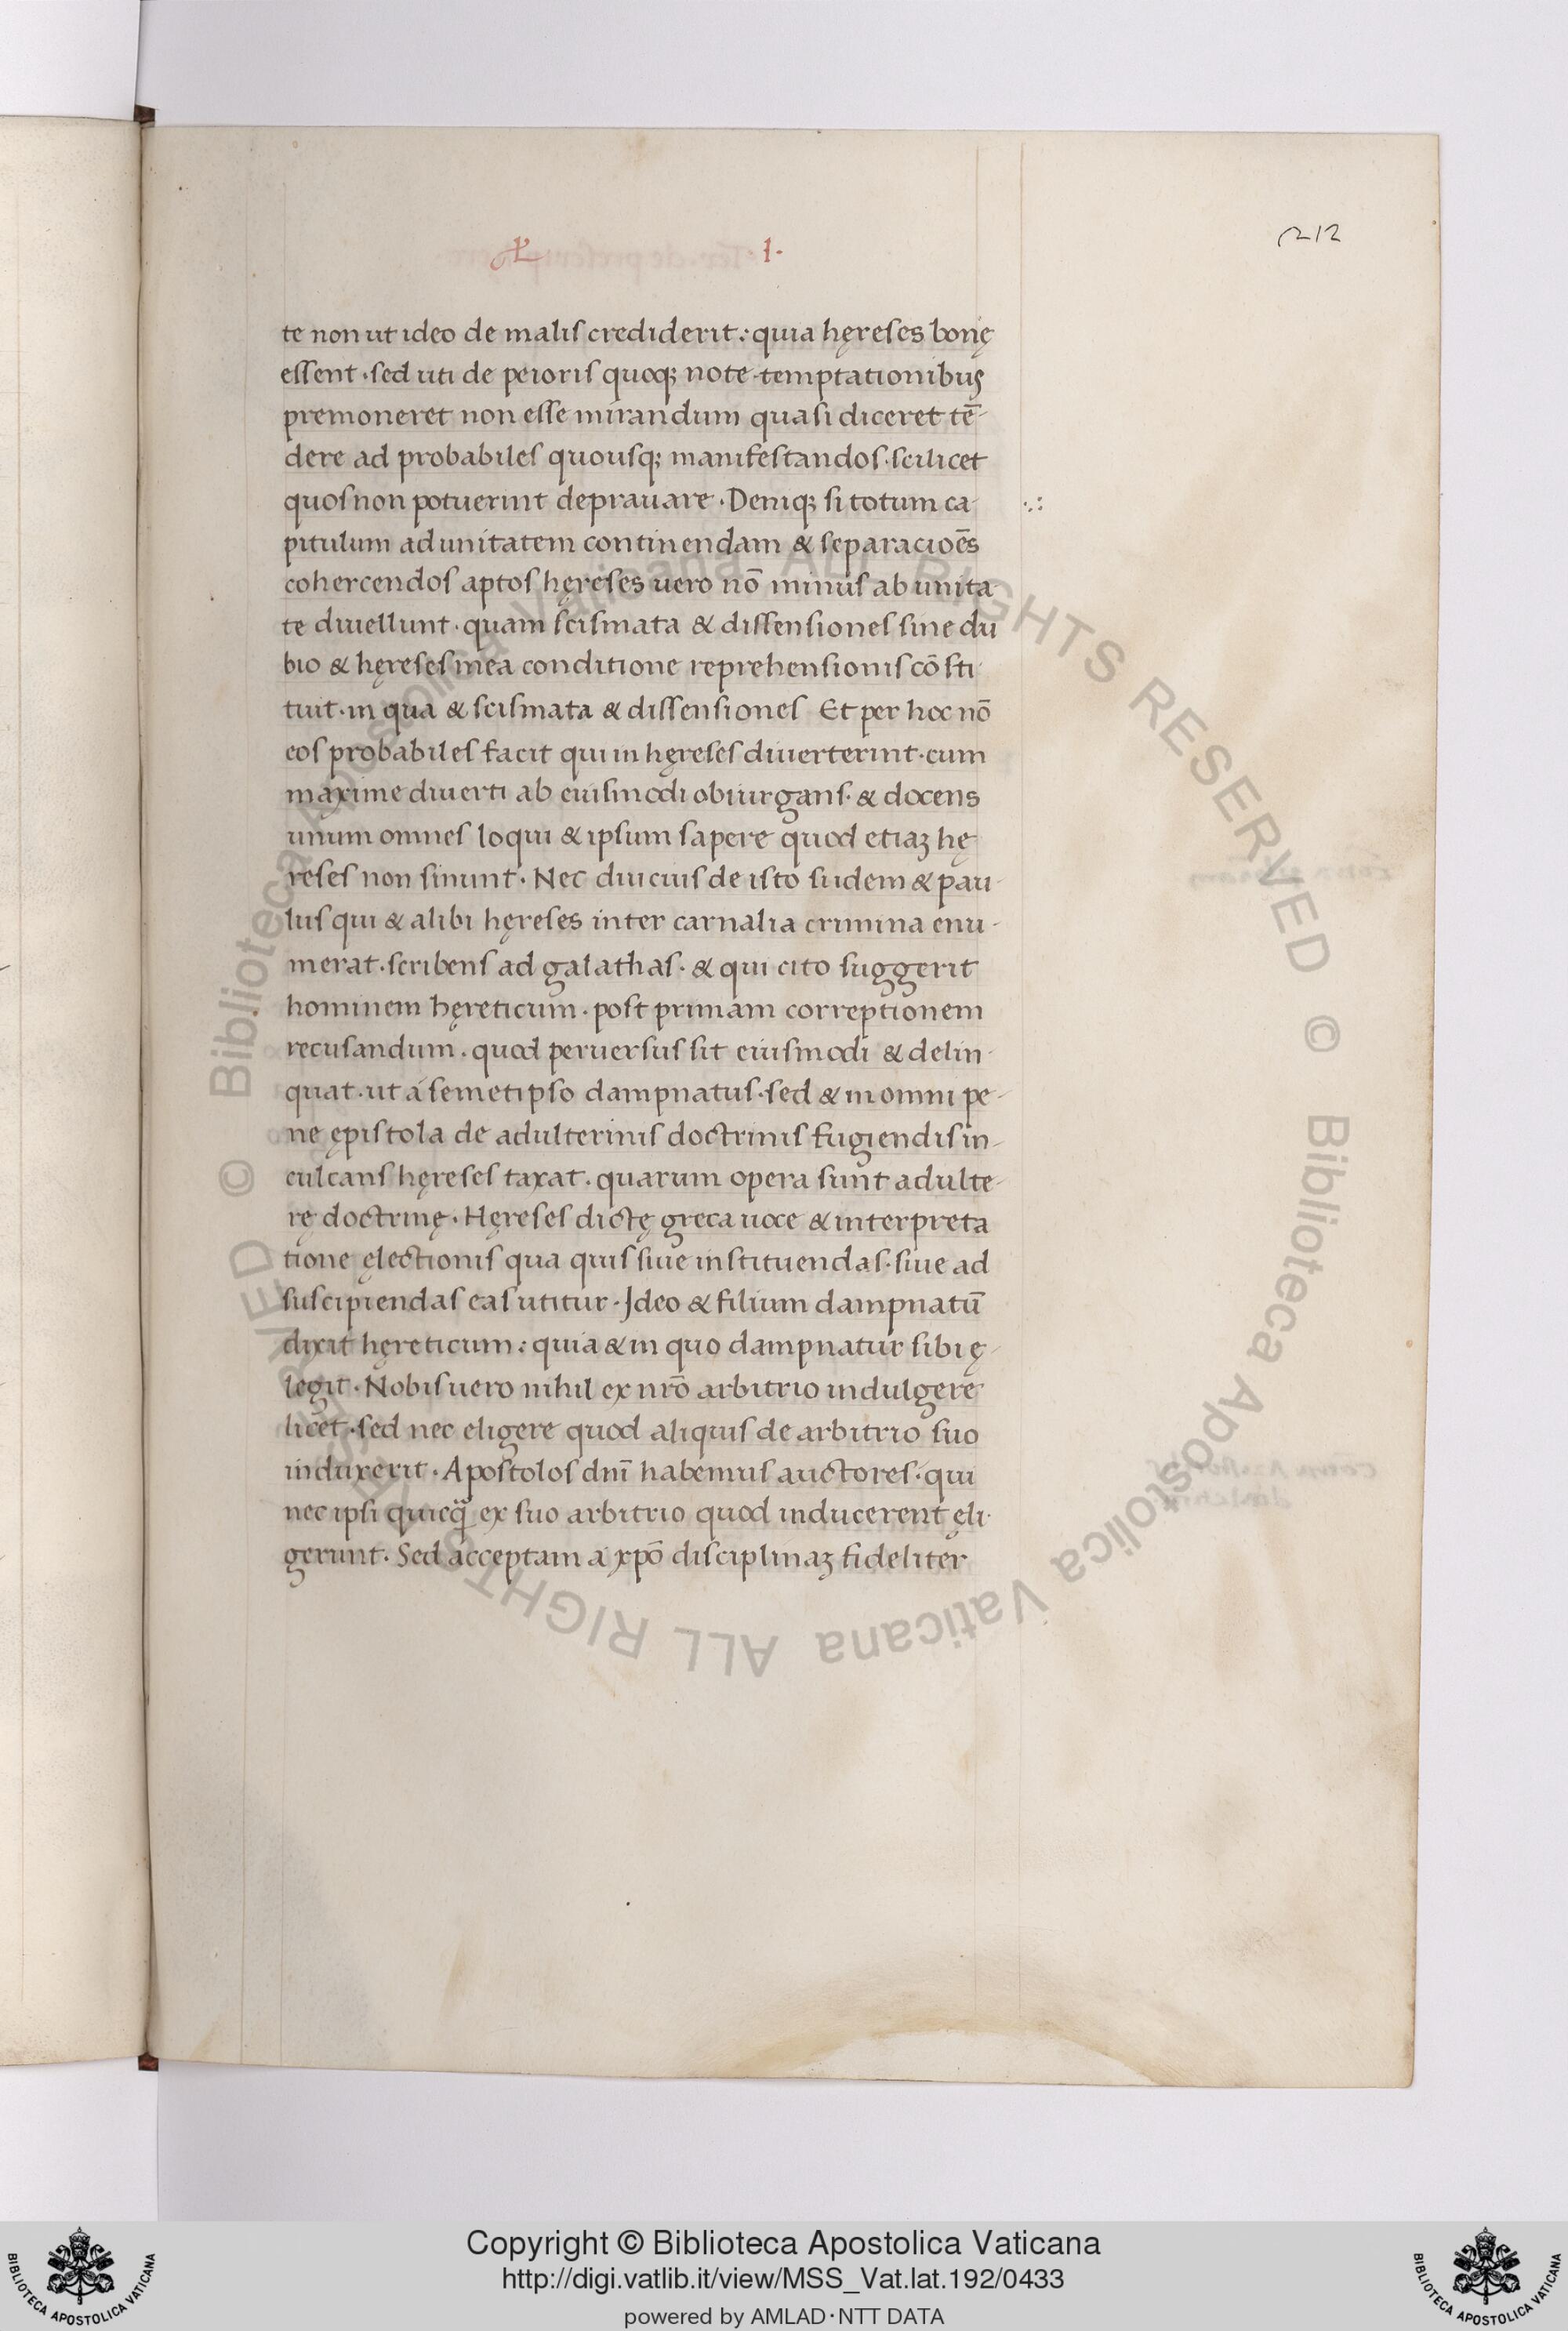 L · I ·
212
te non ut ideo de malis crediderit: quia hęreses bonę
essent · sed uti de peioris quoq; note · temptationibus
premoneret non esse mirandum quasi diceret tē-
dere ad probabiles quousq; manifestandos · scilicet
quos non potuerint deprauare · Deniq; si totum ca-
pitulum ad unitatem continendam & separacioēs
cohercendos aptos hęreses uero nō minus ab unita-
te diuellunt · quam scismata & dissensiones sine du
bio & hęreses in ea conditione reprehensionis cōsti
tuit · in qua & scismata & dissensiones Et per hoc nō
eos probabiles facit qui in hęreses diuerterint · cum
maxime diuerti ab eiusmodi obiurgans · & docens
unum omnes loqui & ipsum sapere quod etiaȝ hę
reses non sinunt · Nec diucius de isto si idem & pau-
lus qui & alibi hęreses inter carnalia crimina enu-
merat · scribens ad galathas · & qui cito suggerit
hominem hęreticum · post primam correptionem
recusandum · quod peruersus sit eiusmodi & delin-
quat · ut á semetipso dampnatus · sed & in omni pe-
ne ępistola de adulterinis doctrinis fugiendis in-
culcans hęreses taxat · quarum opera sunt adulte-
rę doctrinę · Hęreses dictę greca uoce & interpreta
tione ęlectionis qua quis siue instituendas · siue ad
suscipiendas eas utitur · Ideo & filium dampnatū
dixit hęreticum: quia & in quo dampnatur sibi ę-
legit · Nobis uero nihil ex nr̄o arbitrio indulgere
licet · sed nec eligere quod aliquis de arbitrio suo
induxerit · Apostolos dn̄i habemus auctores · qui
nec ipsi quicq̄ ex suo arbitrio quod inducerent ęli-
gerunt · Sed acceptam á xp̄o disciplinaȝ fideliter
© Biblioteca Apostolica Vaticana ALL RIGHTS RESERVED © Biblioteca Apostolica Vaticana ALL RIGHTS RESERVED
Copyright © Biblioteca Apostolica Vaticana
http://digi.vatlib.it/view/MSS_Vat.lat.192/0433
powered by AMLAD · NTT DATA
BIBLIOTECA APOSTOLICA VATICANA
BIBLIOTECA APOSTOLICA VATICANA